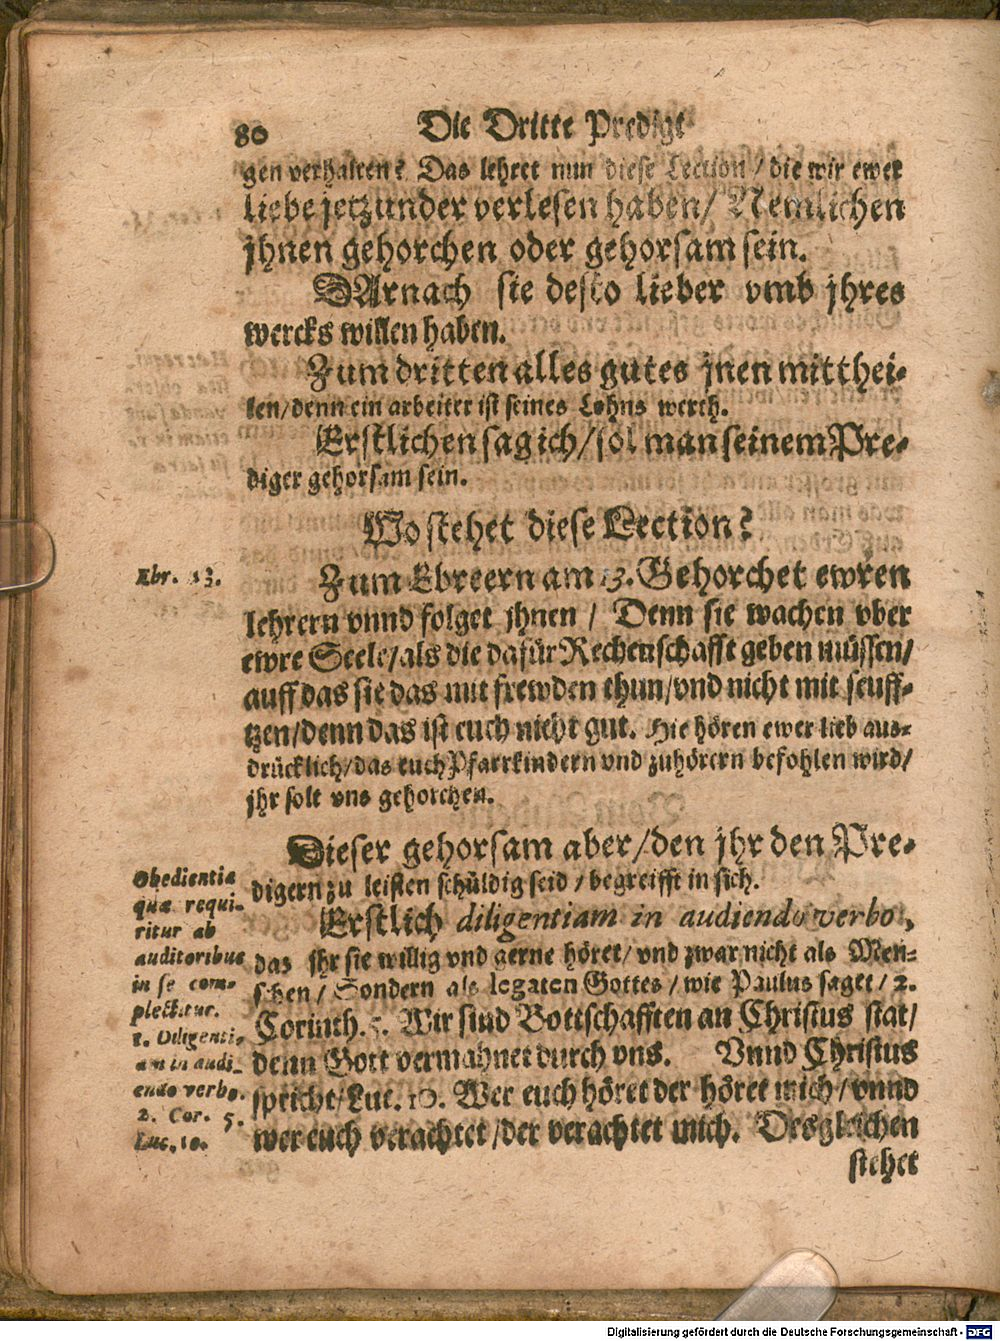 80 Die Dritte Predigt
gen verhalten? Das lehret nun diese Lection / die wir ewer
liebe jetzunder verlesen haben / Nemlichen
jhnen gehorchen oder gehorsam sein.
DArnach sie desto lieber vmb jhres
wercks willen haben.
Zum dritten alles gutes jnen mitthei-
len / denn ein arbeiter ist seines Lohns werth.
Erstlichen sag ich / sol man seinem Pre-
diger gehorsam sein.
Wo stehet diese Lection?
Ebr. 13.
Zum Ebreern am 13. Gehorchet ewren
lehrern vnnd folget jhnen / Denn sie wachen vber
ewre Seele / als die dafür Rechenschafft geben müssen /
auff das sie das mit frewden thun / vnd nicht mit seuff-
tzen / denn das ist euch nicht gut. Hie hören ewer lieb aus-
drücklich / das euch Pfarrkindern vnd zuhörern befohlen wird /
jhr solt vns gehorchen.
Dieser gehorsam aber / den jhr den Pre-
digern zu leisten schüldig seid / begreifft in sich.
Erstlich diligentiam in audiendo verbo,
das jhr sie willig vnd gerne höret / vnd zwar nicht als Men-
schen / Sondern als legaten Gottes / wie Paulus saget / 2.
Corinth. 5. Wir sind Bottschafften an Christus stat /
denn Gott vermahnet durch vns. Vnnd Christus
spricht / Luc. 10. Wer euch höret der höret mich / vnnd
wer euch verachtet / der verachtet mich. Desgleichen
stehet
Obedientia
quæ requi-
ritur ab
auditoribus
in se com-
plectitur.
1. Diligenti-
am in audi-
endo verbo.
2. Cor. 5.
Luc. 10.
Digitalisierung gefördert durch die Deutsche Forschungsgemeinschaft - DFG